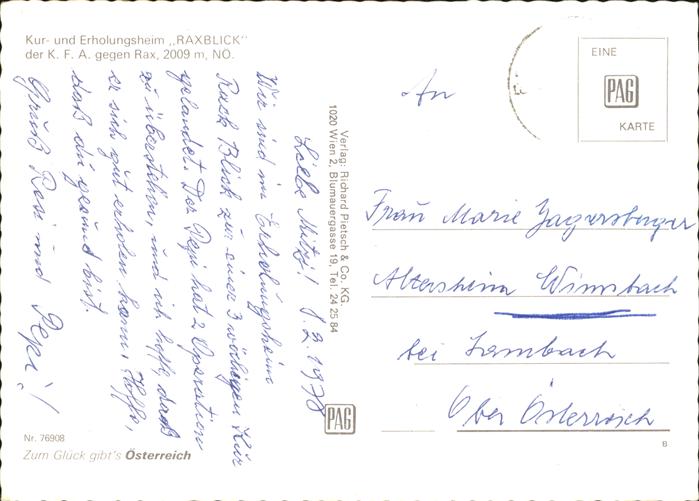 Kur- und Erholungsheim „RAXBLICK"
der K. F. A. gegen Rax, 2009 m, NO.
Liebe Mitzi! 1.2.1978
Wir sind im Erholungsheim
Rax Blick zu einer 3 wöchigen Kur
gelandet. Der Pepi hat 2 Operation
zu überstehen, und ich hoffe, daß
er sich gut erholen kann. Hoffe,
daß du gesund bist.
Gruß Resi und Pepi!
Nr. 76908
Zum Glück gibt's Österreich
Verlag: Richard Pietsch & Co. KG.
1020 Wien 2, Blumauergasse 19, Tel. 24 25 84
PAG
EINE
PAG
KARTE
An
Frau Marie Zagersberger
Altersheim Wimsbach
bei Lambach
Ober Österreich
B